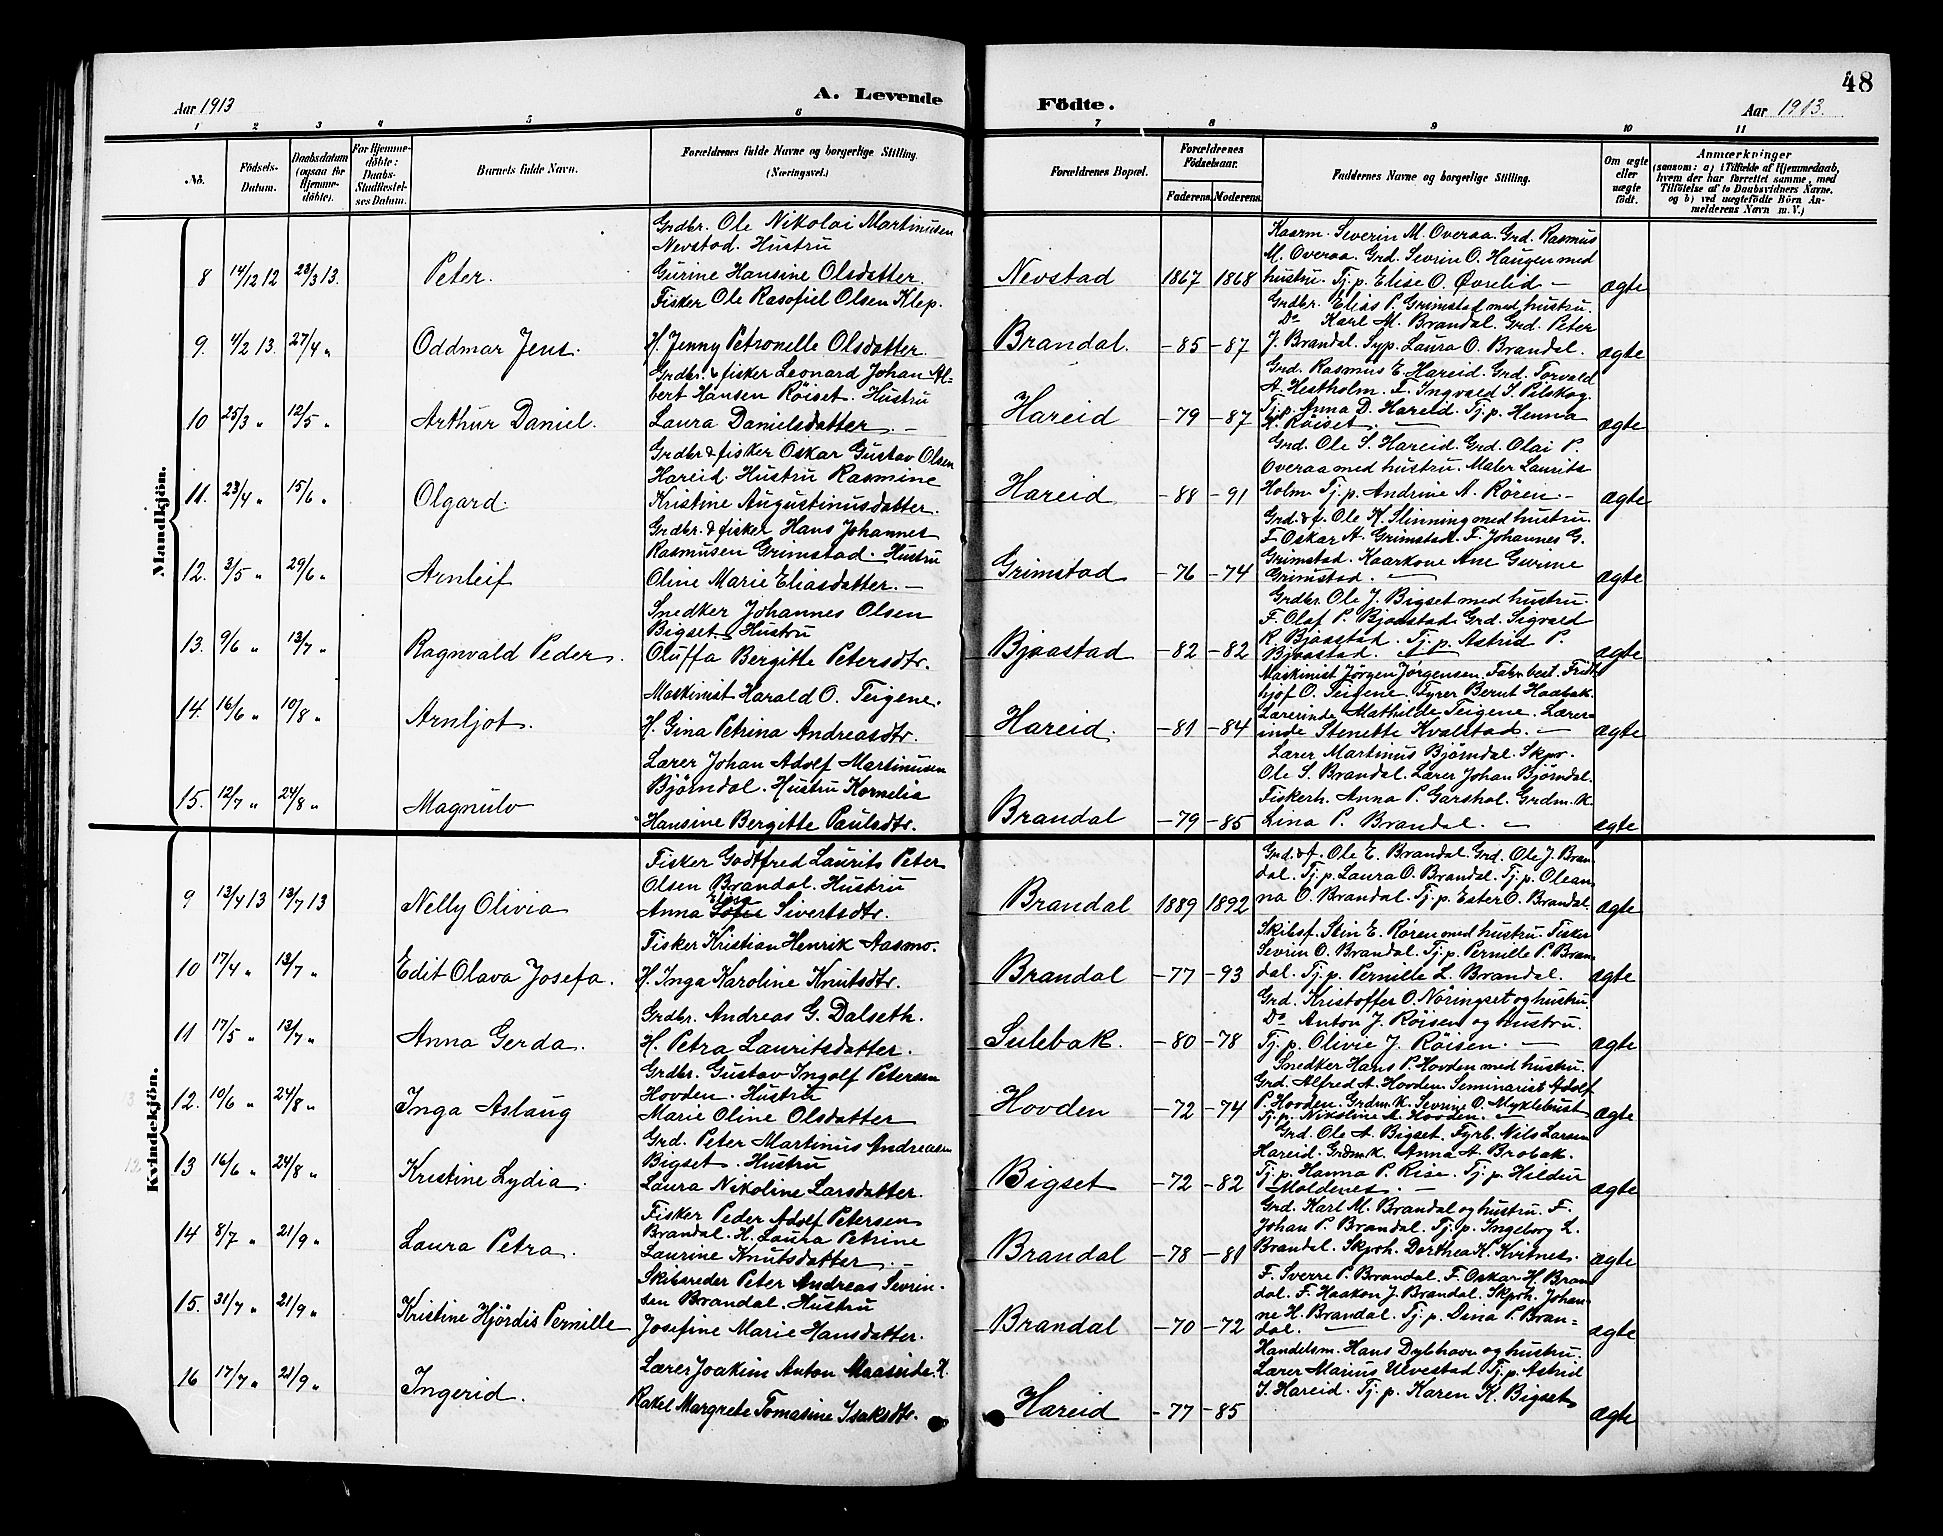 48
Aar 1913
A. Levende
Födte.
Aar 1913.
1 2 3 4 5 6 7 8 9 10 11
No.
Födsels-Datum.
Daabsdatum (ogsaa for Hjemmedöbte).
For Hjemmedöbte: Daabs-Stadfæstelses Datum.
Barnets fulde Navn.
Forældrenes fulde Navne og borgerlige Stilling.
(Næringsvei.)
Forældrenes Bopæl.
Forældrenes Födselsaar.
Faderens.
Moderens.
Faddernes Navne og borgerlige Stilling.
Om ægte eller uægte födt.
Anmærkninger
(saasom: a) i Tilfælde af Hjemmedaab, hvem der har forrettet samme, med Tilföielse af to Daabsvidners Navne, og b) ved uægtefödte Börn Anmelderens Navn m. V.)
Mandkjön.
8 14/12 12 23/3 13. Peter.
Grdbr. Ole Nikolai Martinusen
Nevstad. Hustru
Gurine Hansine Olsdatter.
Nevstad 1867 1868
Kaarm. Severin M. Overaa. Grd. Rasmus
M. Overaa. Grd. Sevrin O. Haugen med
hustru. Tj. p. Elise O. Øvrelid —
ægte
9. 4/2 13. 27/4 „ Oddmar Jens.
Fisker Ole Rasofiel Olsen Klep.
H. Jenny Petronelle Olsdatter.
Brandal. –85 –87
Grdbr. Elias P. Grimstad med hustru.
Do Karl M. Brandal. Grd. Peter
J. Brandal. Syp. Laura O. Brandal.
ægte
10 25/3 „ 12/5 „ Arthur Daniel.
Grdbr. & fisker Leonard Johan Al=
bert Hansen Röiset. Hustru
Laura Danielsdatter. —
Hareid –79 –87
Grd. Rasmus E. Hareid. Grd. Torvald
A. Hestholm. F. Ingvald I. Pilskog.
Tj. p. Anna D. Hareid. Tj. p. Henna
K. Röiset. —
ægte
11. 23/4 „ 15/6 „ Olgard.
Grdbr. & fisker Oskar Gustav Olsen
Hareid. Hustru Rasmine
Kristine Augustinusdatter.
Hareid –88 –91
Grd. Ole S. Hareid. Grd. Olai P.
Overaa med hustru. Maler Laurits
Holm. Tj. p. Andrine A. Røren. —
ægte
12. 3/5 „ 29/6 „ Arnleif
Grdbr. & fisker Hans Johannes
Rasmusen Grimstad. Hustru
Oline Marie Eliasdatter. —
Grimstad –76 –74
Grd. & f. Ole K. Slinning med hustru.
F. Oskar A. Grimstad. F. Johannes G.
Grimstad. Kaarkone Ane Gurine
Grimstad. —
ægte
13. 9/6 „ 13/7 „ Ragnvald Peder.
Snedker Johannes Olsen
Bigset. Hustru
Oluffa Bergitte Petersdtr.
Bjaastad –82 –82
Grdbr. Ole J. Bigset med hustru.
F. Olaf P. Bjaastad. Grd. Sigvald
R. Bjaastad. Tj. p. Astrid P.
Bjaastad. —
ægte
14. 16/6 „ 10/8 „ Arnljot.
Maskinist Harald O. Teigene.
H. Gina Petrina Andreasdtr.
Hareid. –81 –84
Maskinist Jörgen Jörgensen. Fabr. best. Fridt
hjof O. Teigene. Fyrer Bernt Haabak.
Lærerinde Mathilde Teigene. Lærer=
inde Stenette Kvalstad. —
ægte
15. 12/7 „ 24/8 „ Magnulv
Lærer Johan Adolf Martinusen
Bjørndal. Hustru Kornelia
Hansine Bergitte Paulsdtr.
Brandal –79 –85
Lærer Martinus Bjørndal. Skpr.
Ole S. Brandal. Lærer Johan Bjørndal.
Fiskerh. Anna P. Garshol. Grdm. K.
Lina P. Brandal. —
ægte
Kvindekjön.
9 13/4 13 13/7 13 Nelly Olivia
Fisker Godtfred Laurits Peter
Olsen Brandal. Hustru
Anna Sofie Sivertsdtr.
Brandal 1889 1892
Grd. & f. Ole E. Brandal. Grd. Ole J. Bran
dal. Tj. p. Laura O. Brandal. Tj. p. Olean
na O. Brandal. Tj. p. Ester O. Brandal.
ægte
10 17/4 „ 13/7 „ Edit Olava Josefa.
Fisker Kristian Henrik Aasmo.
H. Inga Karoline Knutsdtr.
Brandal –77 –93
Skibsf. Stin E. Røren med hustru. Fisker
Sevrin O. Brandal. Tj. p. Pernille P. Bran
dal. Tj. p. Pernille L. Brandal.
ægte
11 17/5 „ 13/7 „ Anna Gerda.
Grdbr. Andreas G. Dalseth.
H. Petra Lauritsdatter.
Sulebak. –80 –78
Grd. Kristoffer O. Nöringset og hustru.
Do Anton J. Röisen og hustru.
Tj. p. Olivie J. Röisen. —
ægte
13 12. 10/6 „ 24/8 „ Inga Aslaug
Grdbr. Gustav Ingolf Petersen
Hovden. Hustru
Marie Oline Olsdatter
Hovden –72 –74
Snedker Hans P. Hovden med hustru.
Grd. Alfred A. Hovden. Seminarist Adolf
P. Hovden. Grdm. K. Sevrine O. Myklebust
Tj. p. Nikoline A. Hovden. —
ægte
12 13 16/6 „ 24/8 „ Kristine Lydia.
Grd. Peter Martinus Andreasen
Bigset. Hustru
Laura Nikoline Larsdatter.
Bigset –72 –82
Grd. Ole A. Bigset. Fyrb. Nils Larsen
Hareid. Grdm. K. Anna A. Brobak.
Tj. p. Hanna P. Rise. Tj. p. Hildur
Moldenes. —
ægte
14 8/7 „ 21/9 „ Laura Petra.
Fisker Peder Adolf Petersen
Brandal. H. Laura Petrine
Laurine Knutsdatter. —
Brandal –78 –81
Grd. Karl M. Brandal og hustru. F.
Johan P. Brandal. Tj. p. Ingeborg L.
Brandal. Skprh. Dorthea K. Kvitnes.
ægte
15. 31/7 „ 21/9 „ Kristine Hjördis Pernille
Skibsreder Peter Andreas Sevrin-
sen Brandal. Hustru
Josefine Marie Hansdatter.
Brandal –70 –72
F. Sverre P. Brandal. F. Oskar H. Bran
dal. F. Haakon J. Brandal. Skprh. Johan-
ne H. Brandal. Tj. p. Dina P. Bran=
dal. —
ægte
16 17/7 „ 21/9 „ Ingerid.
Lærer Joakim Anton Maaseide. H.
Rakel Margrete Tomasine Isaksdtr.
Hareid –77 –85
Handelsm. Hans Dybhavn og hustru.
Lærer Marius Ulvestad. Tj. p. Astrid
I. Hareid. Tj. p. Karen K. Bigset
ægte